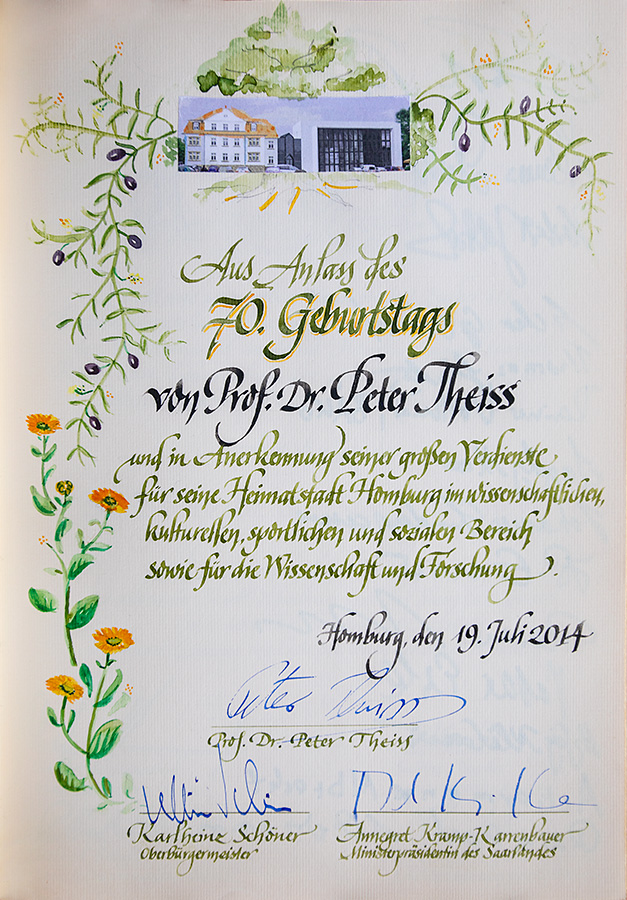 Aus Anlass des
70. Geburtstags
von Prof. Dr. Peter Theiss
und in Anerkennung seiner großen Verdienste
für seine Heimatstadt Homburg im wissenschaftlichen,
kulturellen, sportlichen und sozialen Bereich
sowie für die Wissenschaft und Forschung.
Homburg, den 19. Juli 2014
Peter Theiss
Prof. Dr. Peter Theiss
Karlheinz Schöner
Oberbürgermeister
Annegret Kramp-Karrenbauer
Ministerpräsidentin des Saarlandes